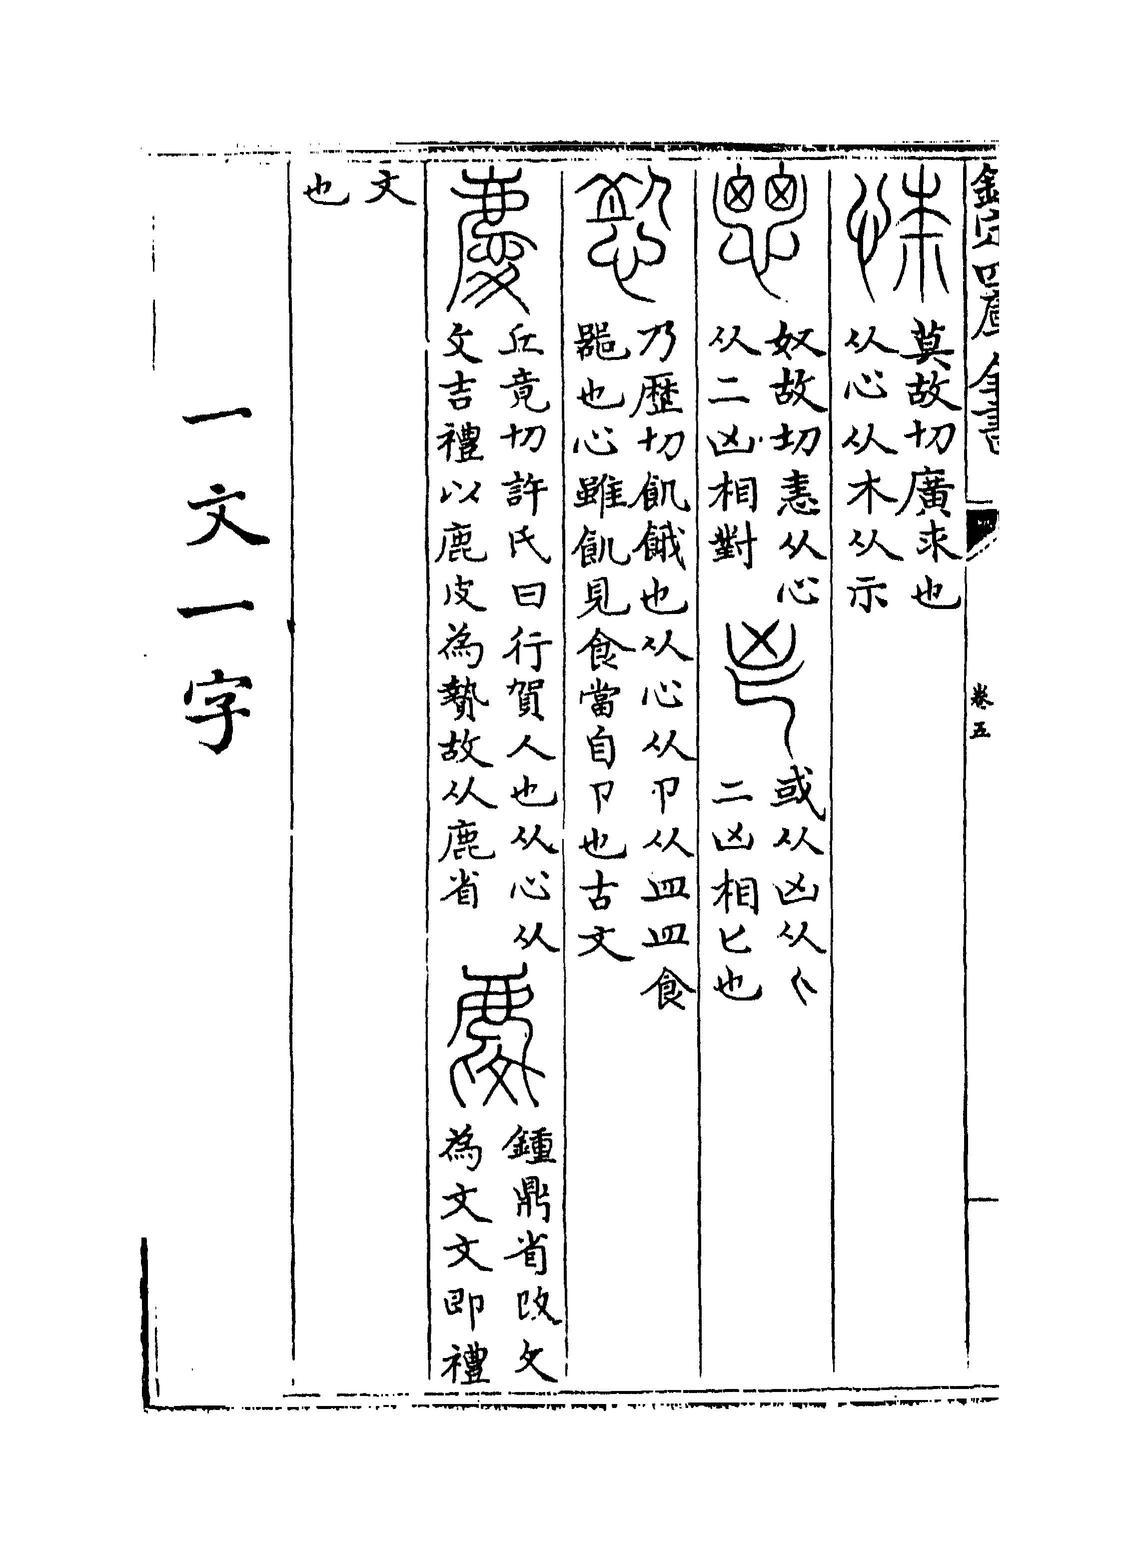 欽定四庫全書
卷五
莫故切廣求也
从心从木从示
奴故切恚从心
从二凶相對
或从凶从
二凶相匕也
乃歴切飢餓也从心从卪从皿皿食
器也心雖飢見食當自卪也古文
丘竟切許氏曰行賀人也从心从
夊吉禮以鹿皮為贄故从鹿省
鍾鼎省改夊
為文文即禮
文
也
一文一字